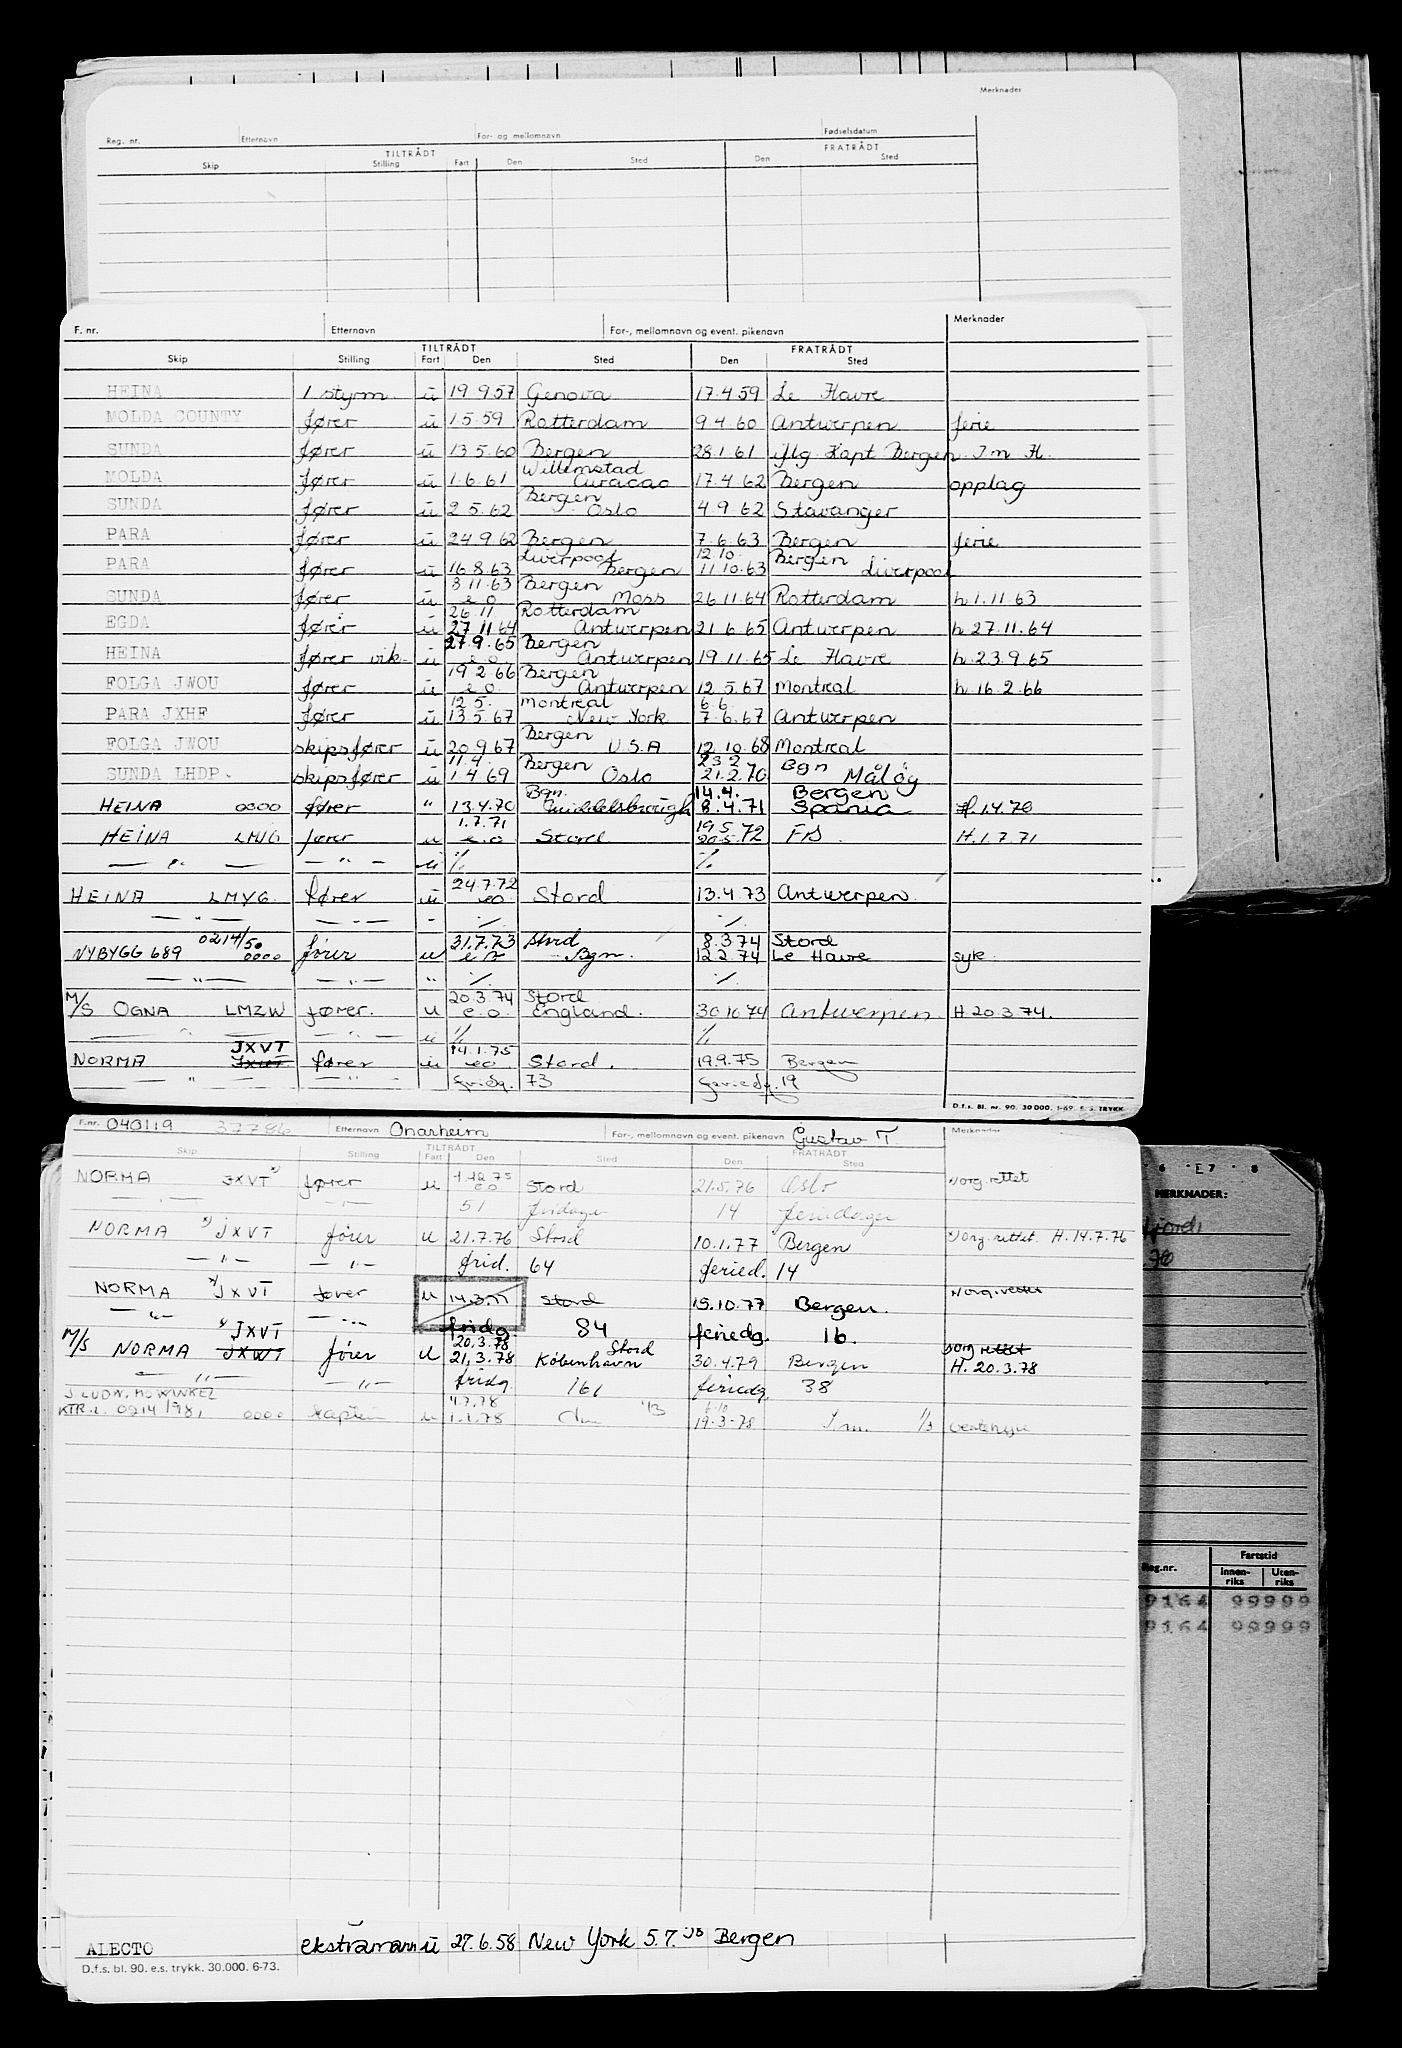 Merknader
Reg. nr. Etternavn For- og mellomnavn Fødselsdatum
TILTRÅDT FRATRÅDT
Skip Stilling Fart Den Sted Den Sted
F. nr. Etternavn For-, mellomnavn og event. pikenavn Merknader
TILTRÅDT FRATRÅDT
Skip Stilling Fart Den Sted Den Sted
HEINA 1 styrm. u 19 9.57 Genova 17.4.59 Le Havre
MOLDA COUNTY fører u 1.5.59 Rotterdam 9.4.60 Antwerpen ferie
SUNDA fører u 13.5.60 Bergen 28.1.61 iflg Kapt Bergen I m H.
MOLDA fører u 1.6.61 Willemstad Curacao 17.4.62 Bergen opplag
SUNDA fører u 2.5.62 Bergen Oslo 4.9.62 Stavanger
PARA fører u 24.9.62 Bergen 7.6.63 Bergen ferie
Liverpool 12.10. Bergen
PARA fører u 16.8.63 Bergen 11.10.63 Liverpool
3.11.63 Bergen
SUNDA fører u e.o Moss 26.11.64 Rotterdam h 1.11.63
26.11. Rotterdam
EGDA fører u 27.11.64 Antwerpen 21.6.65 Antwerpen h 27.11.64
27.9.65 Bergen
HEINA fører vik. u e.o. Antwerpen 19.11.65 Le Havre h. 23.9.65
19.2.66 Bergen
FOLGA JWOU fører u e.o. Antwerpen 12.5.67 Montreal h. 16.2.66
12.5. Montreal 6.6.
PARA JXHF fører u 13.5.67 New York 7.6.67 Antwerpen
Bergen
FOLGA JWOU skipsfører u 20.9.67 U.S.A 12.10.68 Montreal
11.4. Bergen 23.2 Bgn
SUNDA LHDP. skipsfører u 1.4.69 Oslo 21.2.70 Måløy
Bgn. 14.4. Bergen
HEINA 0000 fører " 13.4.70 Middelsbrough 8.4.71 Spania H.1.4.70
1.7.71 19.5
HEINA LMYG fører u e.o Stord 20.5.72 FIS. H.1.7.71
— " — — " — u % %
24.7.72
HEINA LMYG. fører u eo Stord 13.4.73 Antwerpen.
— " — — " — - % %
0214/50 31.7.73 Stord 8.3.74 Stord
NYBYGG 689 0000 fører u e.o Bgn. 12.2.74 Le Havre syk.
— " — — " — " % %
20.3.74 Stord
M/S OGNA LMZW fører. u e.o. England. 30.10.74 Antwerpen H 20.3.74.
— " — — " — u % %
JXVT 14.1.75
NORMA fører u eo Stord. 19.9.75 Bergen
— " — — " — fridg. 73 feriedg. 19
D.f.s. Bl. nr. 90. 30 000. 1-69. E. S. TRYKK
F.nr. 040119 37786 Etternavn Onarheim For-, mellomnavn og event. pikenavn Gustav T. Merknader
TILTRÅDT FRATRÅDT
Skip Stilling Fart Den Sted Den Sted
NORMA JXVT *) fører u 1.12.75 eo Stord 21.5.76 Oslo *) org. rettet
— " — — " — 51 fridager 14 feriedager
NORMA *) JXVT fører u 21.7.76 Stord 10.1.77 Bergen *) org. rettet. H.14.7.76
— " — — " — frid. 64 feried. 14
NORMA *) JXVT fører u 14.3.77 Stord 15.10.77 Bergen. *) org. rettet
— " — — " — fridg. 84 feriedg. 16.
*) JXVT 20.3.78 Stord *) org rettet
M/S NORMA JXWT fører u 21.3.78 København 30.4.79 Bergen H. 20.3.78
— " — — " — fridg. 161 feriedg. 38
J. LUDW. MOWINKEL 4.7.78 6.10
KTR.L. 0214/981 0000 kaptein u 1.1.78 19-3-78 1/3
ALECTO ekstramann u 27.6.58 New York 5.7.58 Bergen
D.f.s. bl. 90. e.s. trykk. 30.000. 6-73.
6 E7 8
MERKNADER:
Reg.nr. Fartstid
Innen-riks Uten-riks
9164 99999
9164 99999